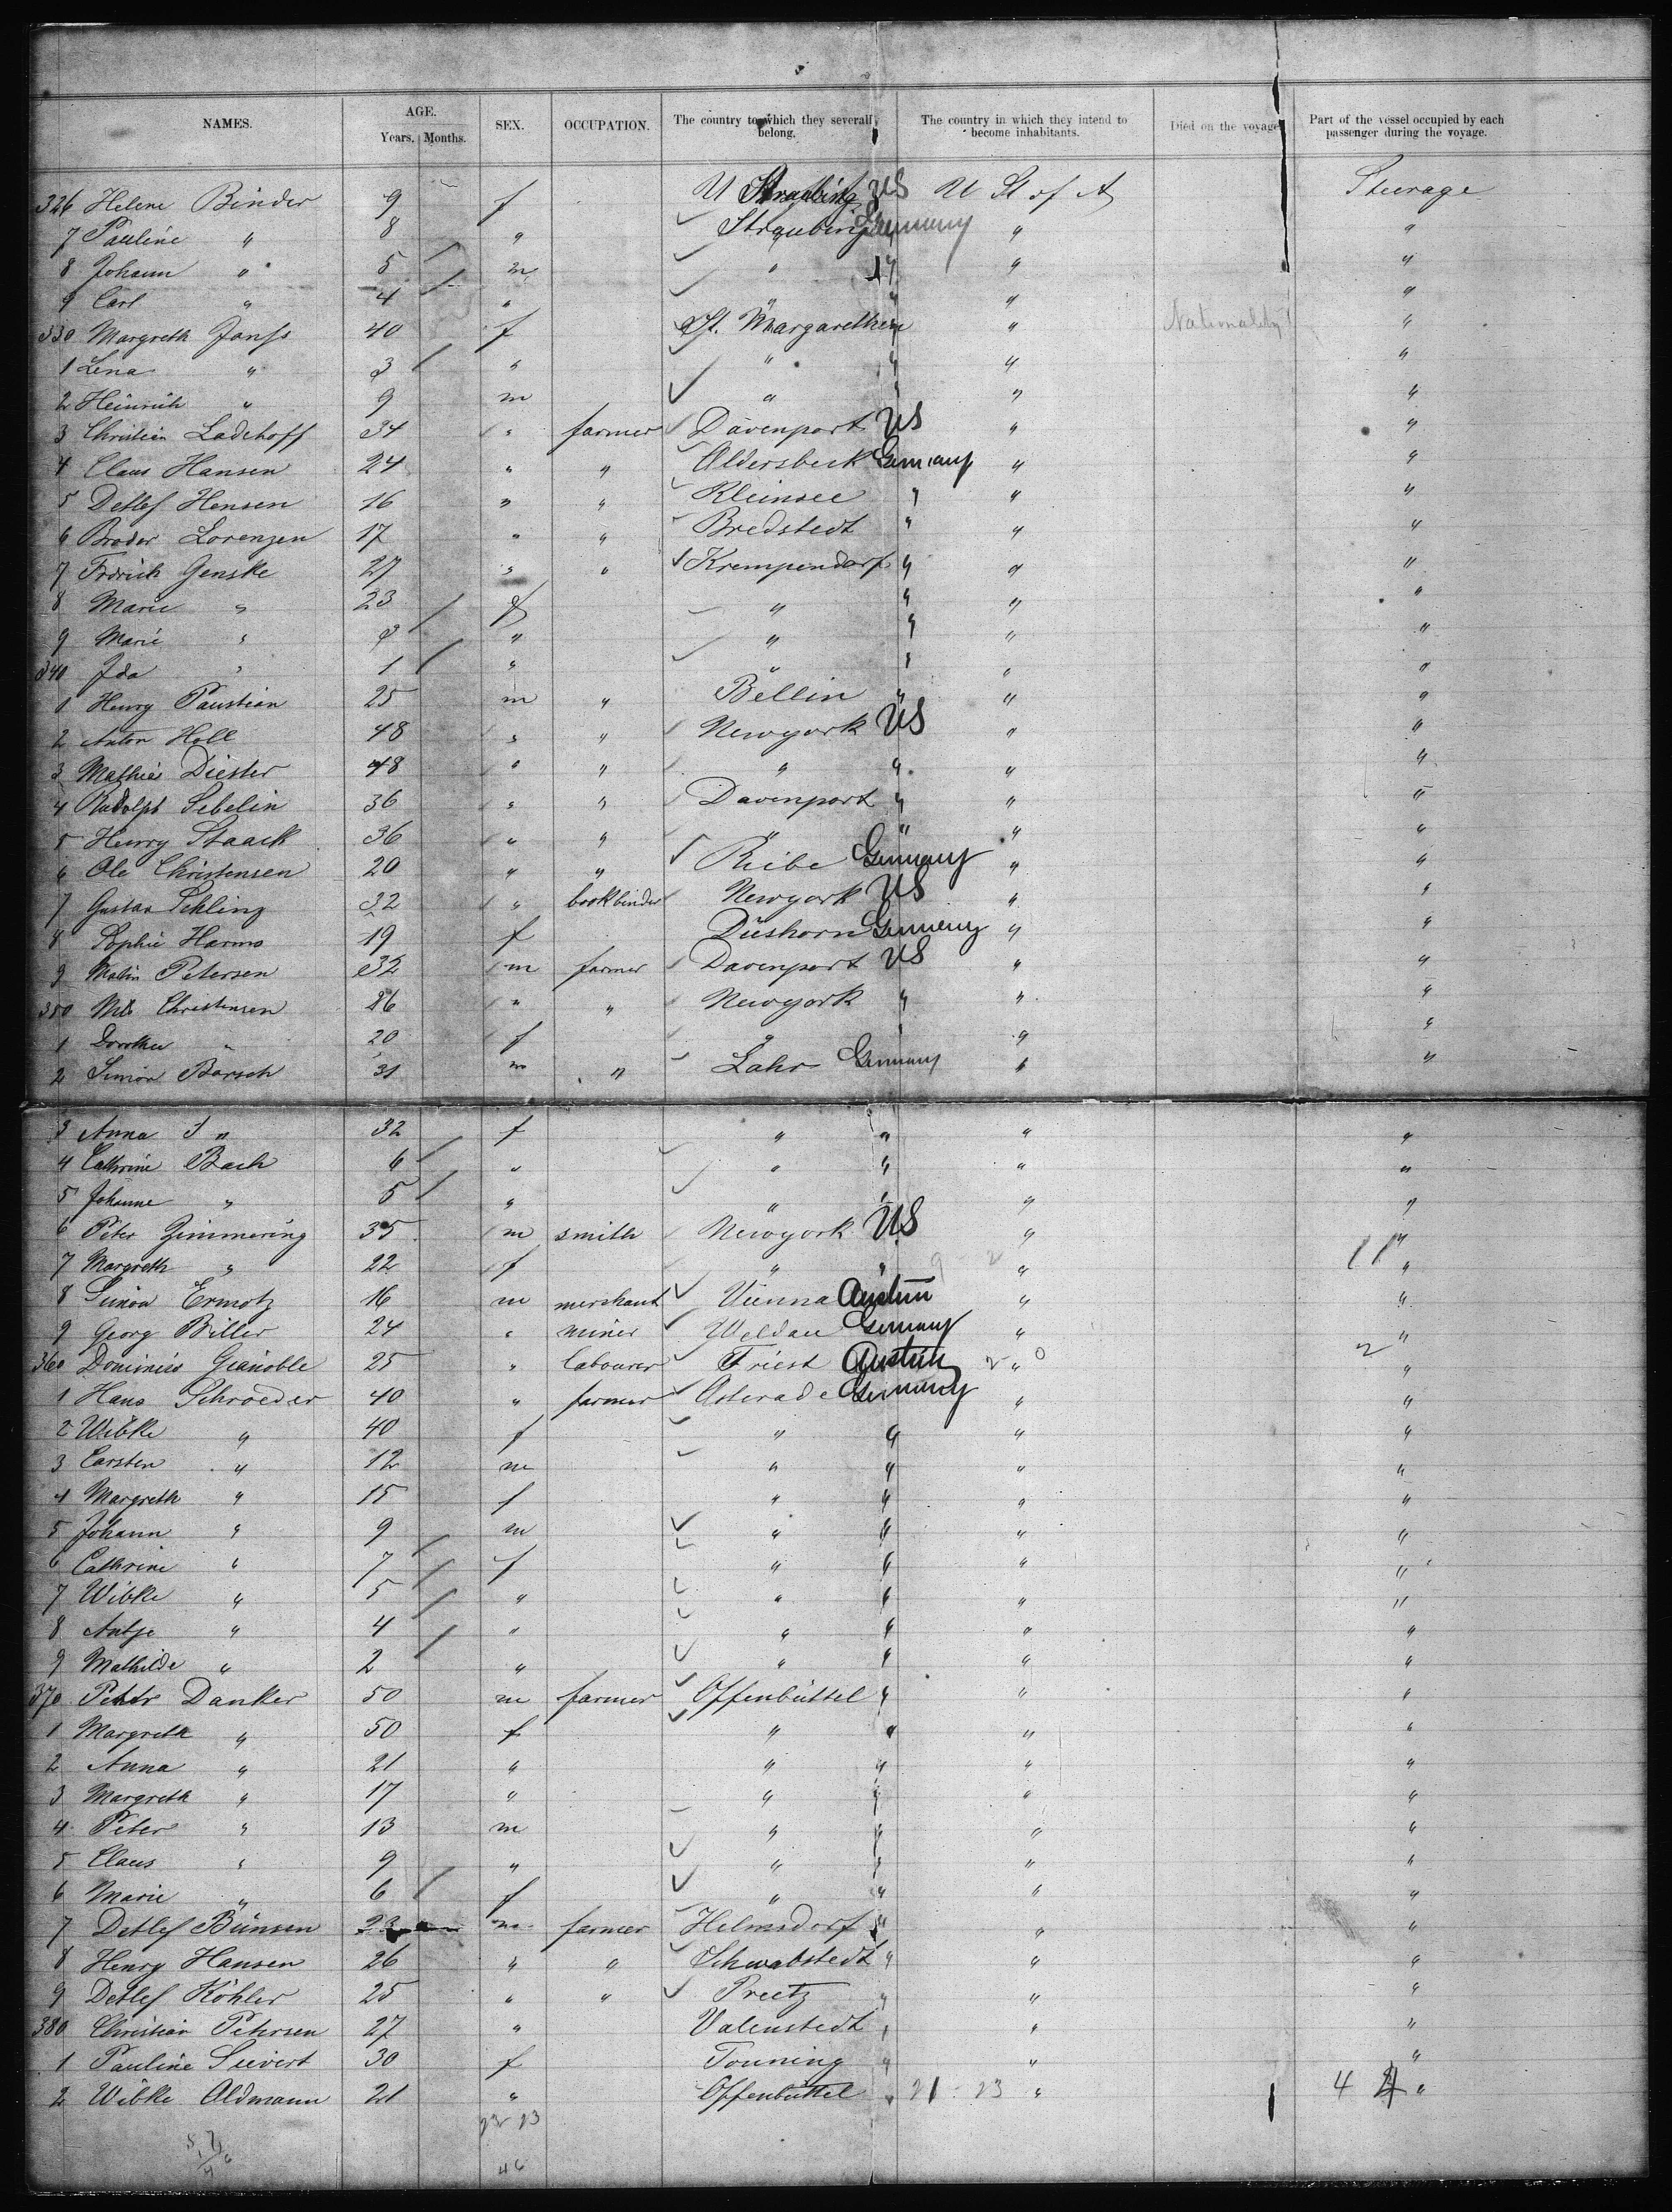 NAMES. AGE. Years. Months. SEX. OCCUPATION. The country to which they severally belong. The country in which they intend to become inhabitants. Died on the voyage Part of the vessel occupied by each passenger during the voyage.
326 Helene Binder 9 f U Straubing US U St of A Steerage
7 Pauline " 8 " Straubing Germany " "
8 Johann " 5 m " " " "
9 Carl " 4 " " " " "
330 Margreth Janss 40 f St. Margarethen " " Nationality "
1 Lena " 3 " " " " "
2 Heinrich " 9 m " " " "
3 Christian Ladehoff 34 " farmer Davenport US " "
4 Claus Hansen 24 " " Aldersbeck Germany " "
5 Detlef Hensen 16 " " Kleinsee " " "
6 Broder Lorenzen 17 " " Bredstedt " " "
7 Frdrich Genske 27 " " Krempendorf " " "
8 Marie " 23 f " " " "
9 Marie " 3 " " " " "
340 Ida " 1 " " " " "
1 Henry Paustian 25 m " Bellin " " "
2 Anton Holl 48 " " Newyork US " "
3 Mathias Diester 48 " " " " " "
4 Rudolph Sebelin 36 " " Davenport " " "
5 Henry Staack 36 " " " " " "
6 Ole Christensen 20 " " Ribe Germany " "
7 Gustav Schling 32 " bookbinder Newyork US " "
8 Sophie Harms 19 f Düshorn Germany " "
9 Matin Petersen 32 m farmer Davenport US " "
350 Nils Christensen 26 " " Newyork " " "
1 Dorothea " 20 f " " " "
2 Simon Barsch 31 m " Lahr Germany " "
3 Anna " 32 f " " " "
4 Cathrine Bach 6 " " " " "
5 Johanne " 5 " " " " "
6 Peter Zimmering 35 m smith Newyork US " "
7 Margreth " 22 f " " " 11 "
8 Simon Ermotz 16 m merchant Vienna Austria " "
9 Georg Biller 24 " miner Weldau Germany " "
360 Dominico Gianoble 25 " labourer Triest Austria " 2 "
1 Hans Schroeder 40 " farmer Osterade Germany " "
2 Wibke " 40 f " " " "
3 Carsten " 12 m " " " "
4 Margreth " 15 f " " " "
5 Johann " 9 m " " " "
6 Cathrine " 7 f " " " "
7 Wibke " 5 " " " " "
8 Antje " 4 " " " " "
9 Mathilde " 2 " " " " "
370 Peter Danker 50 m farmer Offenbüttel " " "
1 Margreth " 50 f " " " "
2 Anna " 21 " " " " "
3 Margreth " 17 " " " " "
4 Peter " 13 m " " " "
5 Claus " 9 " " " " "
6 Marie " 6 f " " " "
7 Detlef Bünsen 23 m farmer Helmsdorf " " "
8 Henry Hansen 26 " " Schwabstedt " " "
9 Detlef Köhler 25 " " Preetz " " "
380 Christian Petersen 27 " Valenstedt " " "
1 Pauline Sievert 30 f Tonning " " "
2 Wibke Oldmann 21 " Offenbüttel " 21 - 23 " 4 "
23 23
46